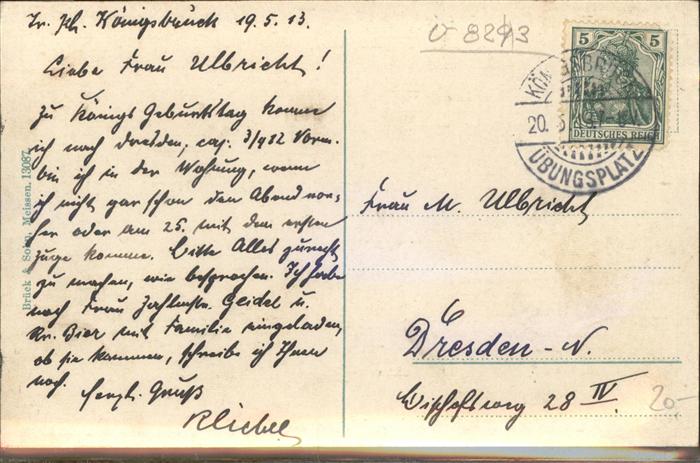 Tr. Pl. Königsbrück 19.5.13.
Liebe Frau Ulbricht!
Zu Königs Geburtstag komme
ich nach Dresden, ca. 3/4 12 Vorm.
bin ich in der Wohnung, wenn
ich nicht gar schon den Abend vor-
her oder am 25. mit dem ersten
Zuge komme. Bitte Alles zurecht
zu machen, wie besprochen. Ich habe
noch Frau Zahlmstr. Geidel u.
Kr. Bier mit Familie eingeladen,
ob sie kommen, schreibe ich Ihnen
noch. Herzl. Gruß
Brück & Sohn, Meissen. 13087.
V 8293
5 5
DEUTSCHES REICH
20. 5.
ÜBUNGSPLATZ
Frau M. Ulbricht
Dresden-N.
Bischofsweg 28 IV
20.-